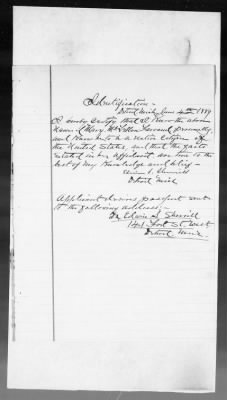 Identification.
Detroit Mich June 4th 1889
I hereby certify that I know the above
named Mary personally,
and know her to be a native Citizen of
the United States, and that the facts
stated in her affidavit are true to the
best of my knowledge and belief.
Edwin L. Sherrill
Detroit Mich
Applicant desires passport sent
to the following address:
Edwin L. Sherrill
Fort St. West
Detroit Mich.